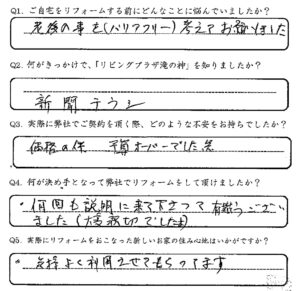 Q1. ご自宅をリフォームする前にどんなことに悩んでいましたか？
老後の事を(バリアフリー)考えてお願いしました
Q2. 何がきっかけで、「リビングプラザ滝の神」を知りましたか？
新聞チラシ
Q3. 実際に弊社でご契約を頂く際、どのような不安をお持ちでしたか？
価格の件 予算オーバーでした為
Q4. 何が決め手となって弊社でリフォームをして頂けましたか？
・何回も説明に来て下さって有難うござい
ました(大変親切でした)
Q5. 実際にリフォームをおこなった新しいお家の住み心地はいかがですか？
・気持よく利用させてもらってます